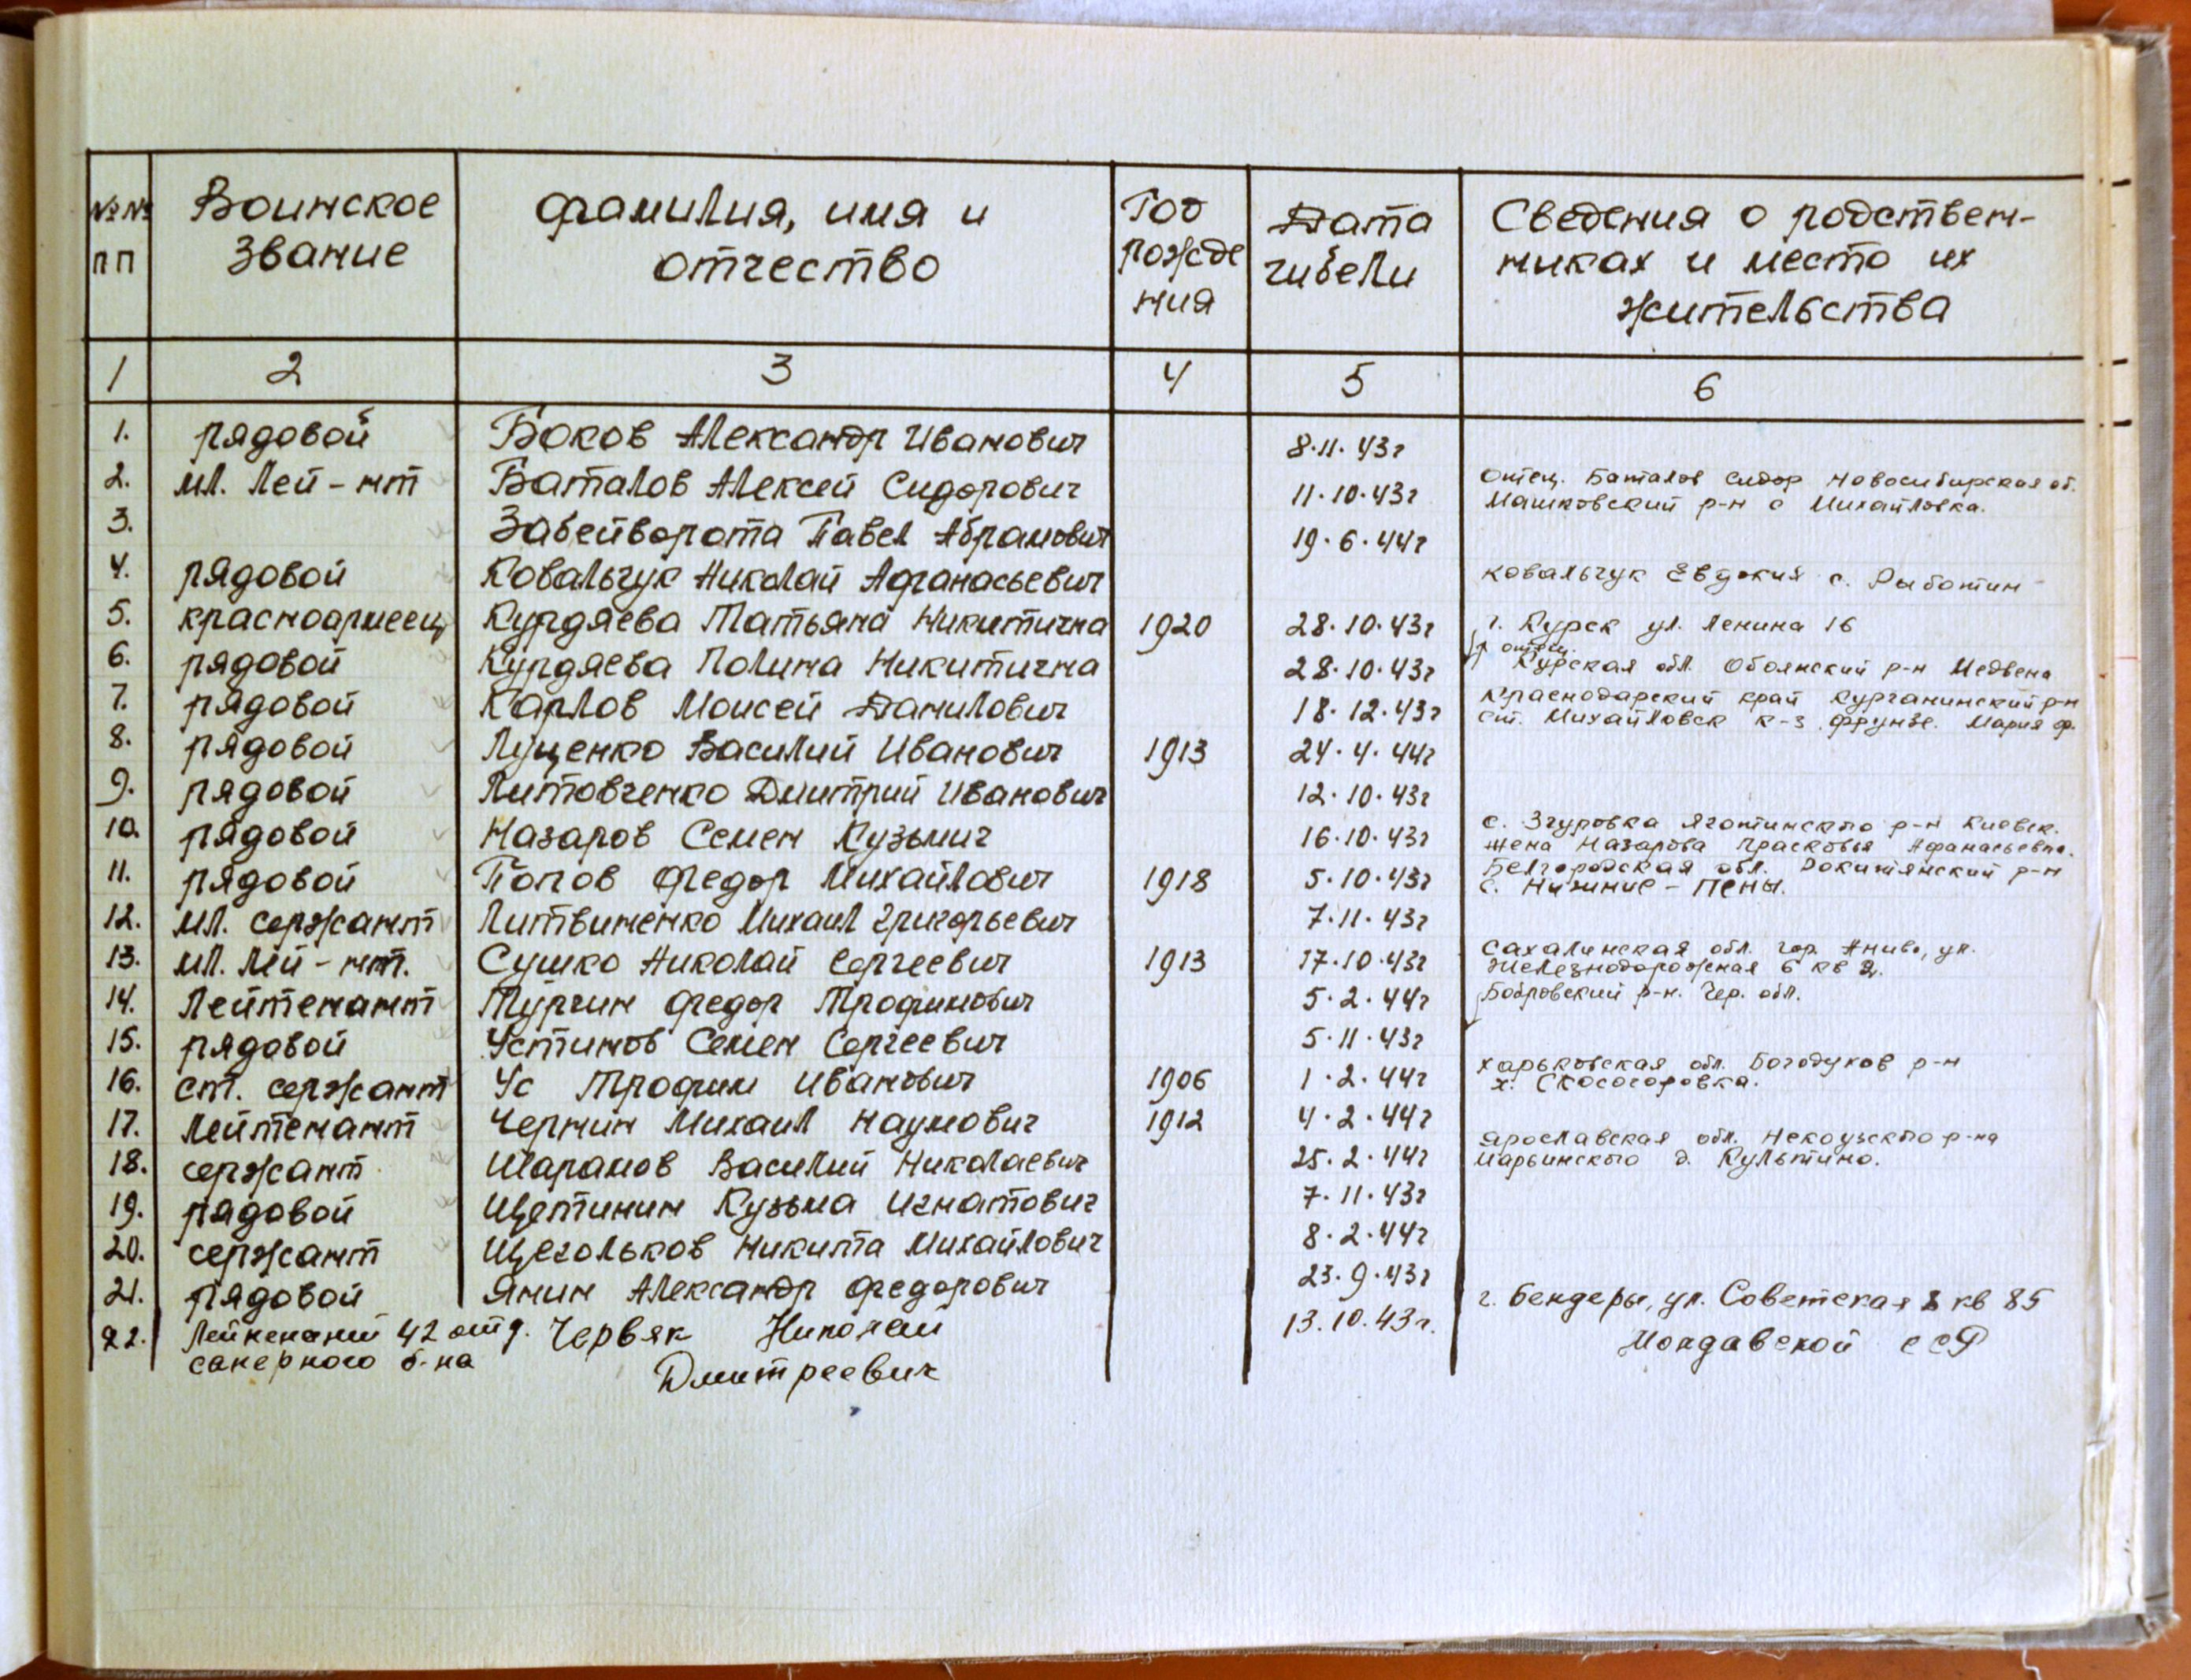 №№ пп Воинское звание фамилия, имя и отчество Год рожде ния Дата гибели Сведения о родствен- никах и место их жительства
1 2 3 4 5 6
1. рядовой Боков Александр Иванович 8.11.43г
2. мл. лей-нт Баталов Алексей Сидорович 11.10.43г отец. Баталов Сидор Новосибирская об.
Машковский р-н с Михайловка.
3. Забейворота Павел Абрамович 19.6.44г
4. рядовой Ковальчук Николай Афанасьевич Ковальчук Евдокия с.
5. красноармеец Курдяева Татьяна Никитична 1920 28.10.43г г. Курск ул. Ленина 16
отец.
6. рядовой Курдяева Полина Никитична 28.10.43г Курская обл. Обоянский р-н Медвена
7. рядовой Карлов Моисей Данилович 18.12.43г Краснодарский край Курганинский р-н
ст. Михайловск к-з Фрунзе. Мария Ф.
8. рядовой Луценко Василий Иванович 1913 24.4.44г
9. рядовой Литовченко Дмитрий Иванович 12.10.43г
10. рядовой Назаров Семен Кузьмич 16.10.43г с. Згуровка Яготинского р-н Киевск.
жена Назарова Прасковья Афанасьевна.
11. рядовой Попов Федор Михайлович 1918 5.10.43г Белгородская обл. Ракитянский р-н
с. Нижние-Пены.
12. мл. сержант Литвиненко Михаил Григорьевич 7.11.43г
13. мл. лей-нт. Сушко Николай Сергеевич 1913 17.10.43г Сахалинская обл. гор. Анива, ул.
Железнодорожная 6 кв 2.
14. лейтенант Тургин Федор Трофимович 5.2.44г Бобровский р-н. Чер. обл.
15. рядовой Устинов Семен Сергеевич 5.11.43г
16. ст. сержант Ус Трофим Иванович 1906 1.2.44г Харьковская обл. Богодухов р-н
х. Скосогоровка.
17. лейтенант Чернин Михаил Наумович 1912 4.2.44г
18. сержант Шарамов Василий Николаевич 25.2.44г Ярославская обл. Некоузского р-на
Марьинского д. Культино.
19. рядовой Щетинин Кузьма Игнатович 7.11.43г
20. сержант Щегольков Никита Михайлович 8.2.44г
21. рядовой Янин Александр Федорович 23.9.43г
22. Лейтенант 42 отд. саперного б-на Червяк Николай Дмитреевич 13.10.43г. г. Бендеры, ул. Советская 8 кв 85
Молдавской ССР